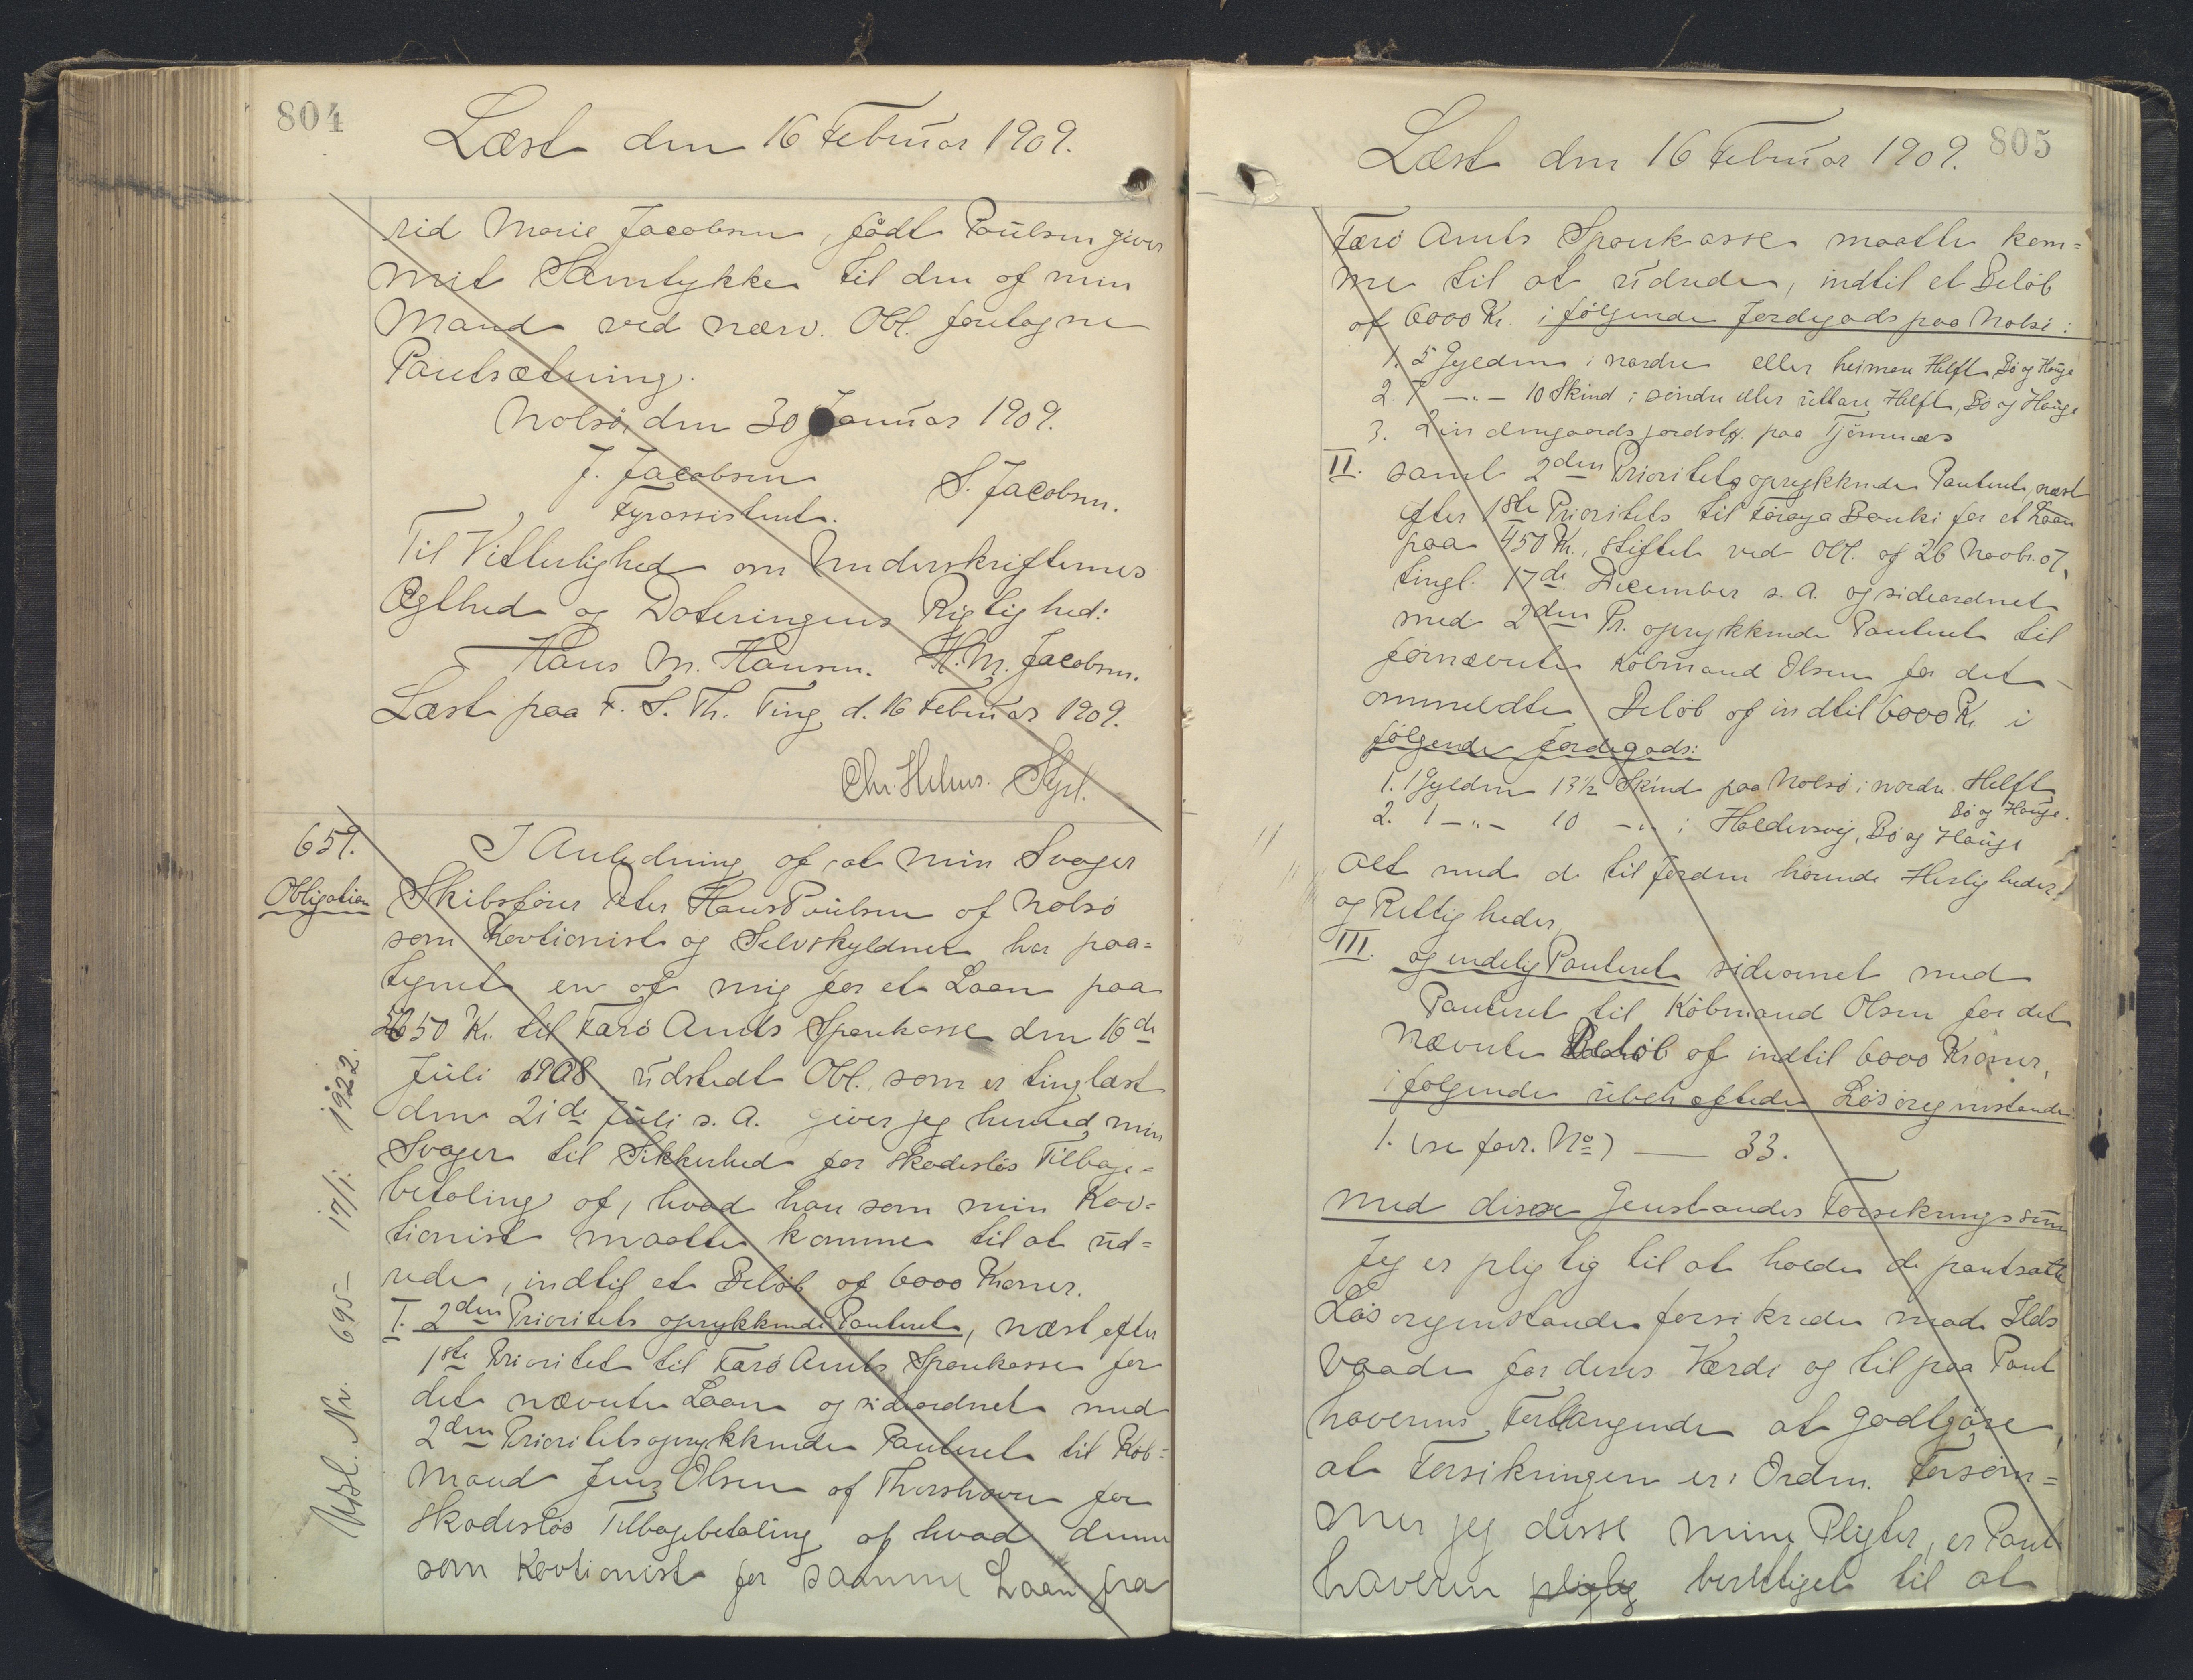 804
Læst den 16 Februar 1909.
rid Marie Jacobsen, født Poulsen giver
mit Samtykke til den af min
Mand ved nærv. Obl. foretagne
Pantsætning.
Nolsø, den 30 Januar 1909.
J. Jacobsen
S. Jacobsen.
Fyrassistent.
Til Vitterlighed om Underskrifternes
Ægthed og Dateringens Rigtighed:
Hans M. Hansen. H. M. Jacobsen.
Læst paa F. S. Th. Ting, d. 16 Februar 1909.
Chr. Helms. Styrl.
659.
Obligation
I Anledning af, at min Svoger
Skibsfører Peter Hans Poulsen af Nolsø
som Kavtionist og Selvskyldner har paa=
tegnet en af mig for et Laan paa
5650 Kr. til Færø Amts Sparekasse den 16de
Juli 1908 udstedt Obl. som er tinglæst
den 21de Juli s. A. giver jeg herved min
Svoger til Sikkerhed for skadesløs Tilbage=
betaling af, hvad han som min Kav=
tionist maatte komme til at ud=
rede, indtil et Beløb af 6000 Kroner.
I. 2den Prioritets oprykkende Panteret, næst efter
1ste Prioritet til Færø Amts Sparekasse for
det nævnte Laan og sideordnet med
2den Prioritets oprykkende Panteret til Køb=
mand Jens Olsen af Thorshavn for
skadesløs Tilbagebetaling af hvad denne
som Kavtionist for samme Laan fra
Afl. Nr. 695 – 17/1. 1922.
805
Læst den 16 Februar 1909.
Færø Amts Sparekasse maatte kom=
me til at udrede, indtil et Beløb
af 6000 Kr. i følgende Jordegods paa Nolsø:
1. 5 Gylden i nordre eller heimare Helft, Bø og Hauge
2. 7 —"— 10 Skind i søndre eller uttare Helft, Bø og Hauge
3. paa Tjørnnæs
II. samt 2den Prioritets oprykkende Panteret, næst
efter 1ste Prioritets til Føroya Banki for et Laan
paa 450 Kr., stiftet ved Obl. af 26 Novbr. 07,
tingl. 17de December s. A. og sideordnet
med 2den Pr. oprykkende Panteret til
førnævnte Købmand Olsen for det
ommeldte Beløb af indtil 6000 Kr. i
følgende Jordegods:
1. 1 Gylden 13½ Skind paa Nolsø i nordre Helft,
Bø og Hauge.
2. 1 —"— 10 —"— i Haldersvig, Bø og Hauge
alt med de til Jorden hørende Herligheder
og Rettigheder,
III. og endelig Panteret sideornet med
Panteret til Købmand Olsen for det
nævnte Beløb af indtil 6000 Kroner,
i følgende ubehæftede Løsøregenstande
1. (se forr. No) — 33.
med disse Genstandes Forsikringssum
Jeg er pligtig til at holde de pantsatte
Løsøregenstande forsikrede mod Ilds
vaade for deres Værdi og til paa Pant
haverens Forlangende at godtgøre,
at Forsikringen er i Orden. Forsøm=
mer jeg disse mine Pligter, er Pant
haveren pligtig berettiget til at